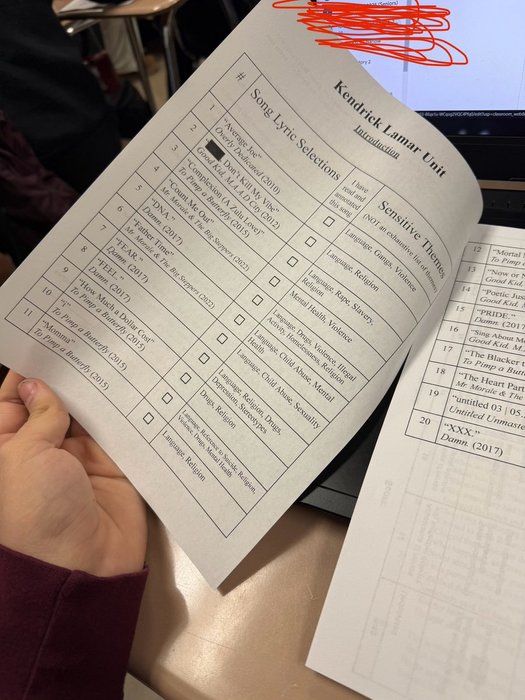 Kendrick Lamar Unit
Introduction
#
Song Lyric Selections
I have
read and
annotated
this song
Sensitive Themes
(NOT an exhaustive list of themes)
1
"Average Joe"
Overly Dedicated (2010)
Language, Gangs, Violence
2
Don't Kill My Vibe"
Good Kid, M.A.A.D City (2012)
Language, Religion
3
"Complexion (A Zulu Love)"
To Pimp a Butterfly (2015)
Language, Rape, Slavery,
Religion
4
"Count Me Out"
Mr. Morale & The Big Steppers (2022)
Mental Health, Violence
5
"DNA."
Damn. (2017)
Language, Drugs, Violence, Illegal
Activity, Homelessness, Religion
6
"Father Time"
Mr. Morale & The Big Steppers (2022)
Language, Child Abuse, Mental
Health
7
"FEAR."
Damn. (2017)
Language, Child Abuse, Sexuality
8
"FEEL."
Damn. (2017)
Language, Religion, Drugs,
Depression, Stereotypes
9
"How Much a Dollar Cost"
To Pimp a Butterfly (2015)
Drugs, Religion
10
"i"
To Pimp a Butterfly (2015)
Language, Reference to Suicide, Religion,
Violence, Drugs, Mental Health
11
"Momma"
To Pimp a Butterfly (2015)
Language, Religion
12
"Mortal
To Pimp a
13
"Now or
Good Kid,
14
"Poetic Jus
Good Kid,
15
"PRIDE."
Damn. (201
16
"Sing About M
Good Kid, M.
17
"The Blacker
To Pimp a Butt
18
"The Heart Part
Mr. Morale & The
19
"untitled 03 | 05.
Untitled Unmaste
20
"XXX."
Damn. (2017)